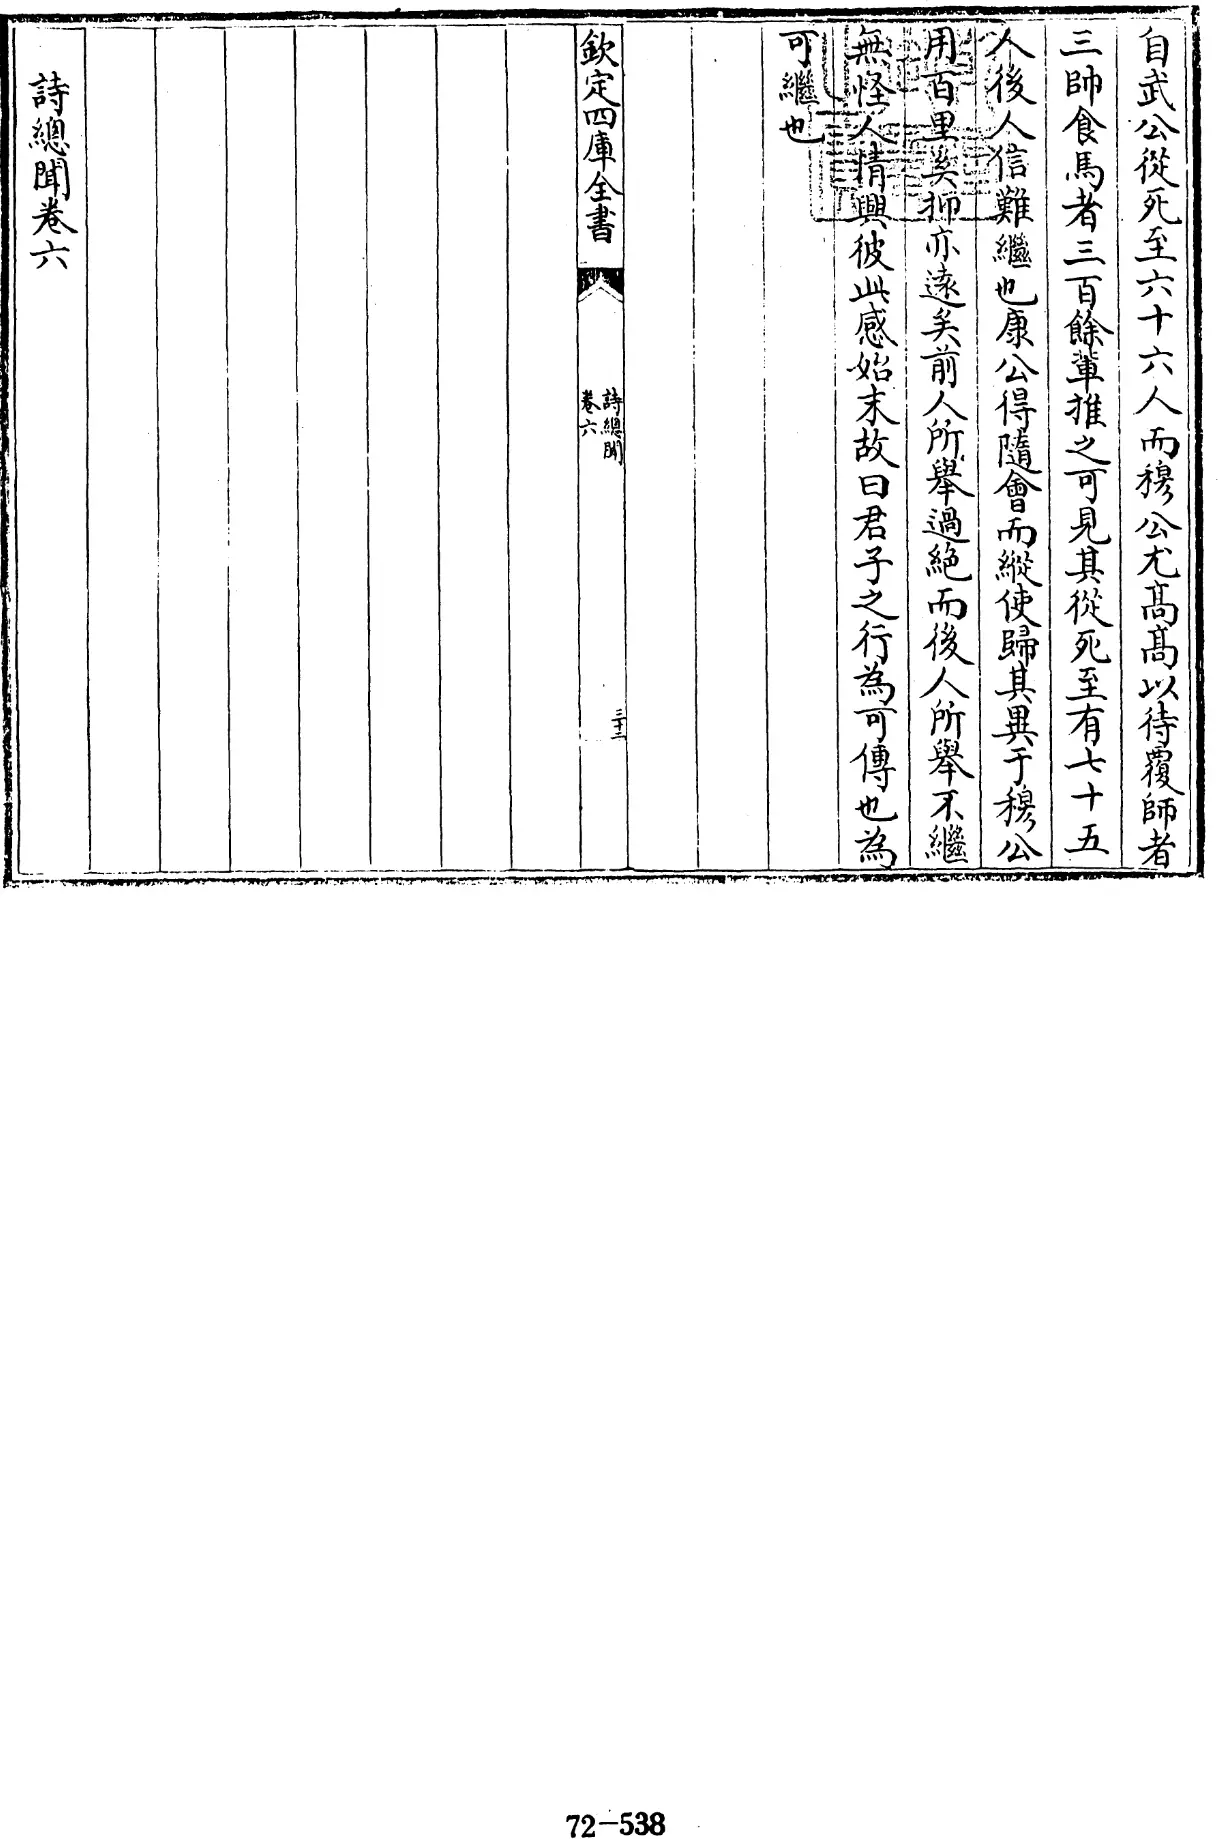 自武公從死至六十六人而穆公尤髙髙以待覆師者
三帥食馬者三百餘輩推之可見其從死至有七十五
人後人信難繼也康公得隨會而縱使歸其異于穆公
用百里奚抑亦逺矣前人所舉過絶而後人所舉不繼
無怪人情興彼此感始末故曰君子之行為可傳也為
可繼也
欽定四庫全書
詩總聞
卷六
三十二
詩總聞卷六
72-538